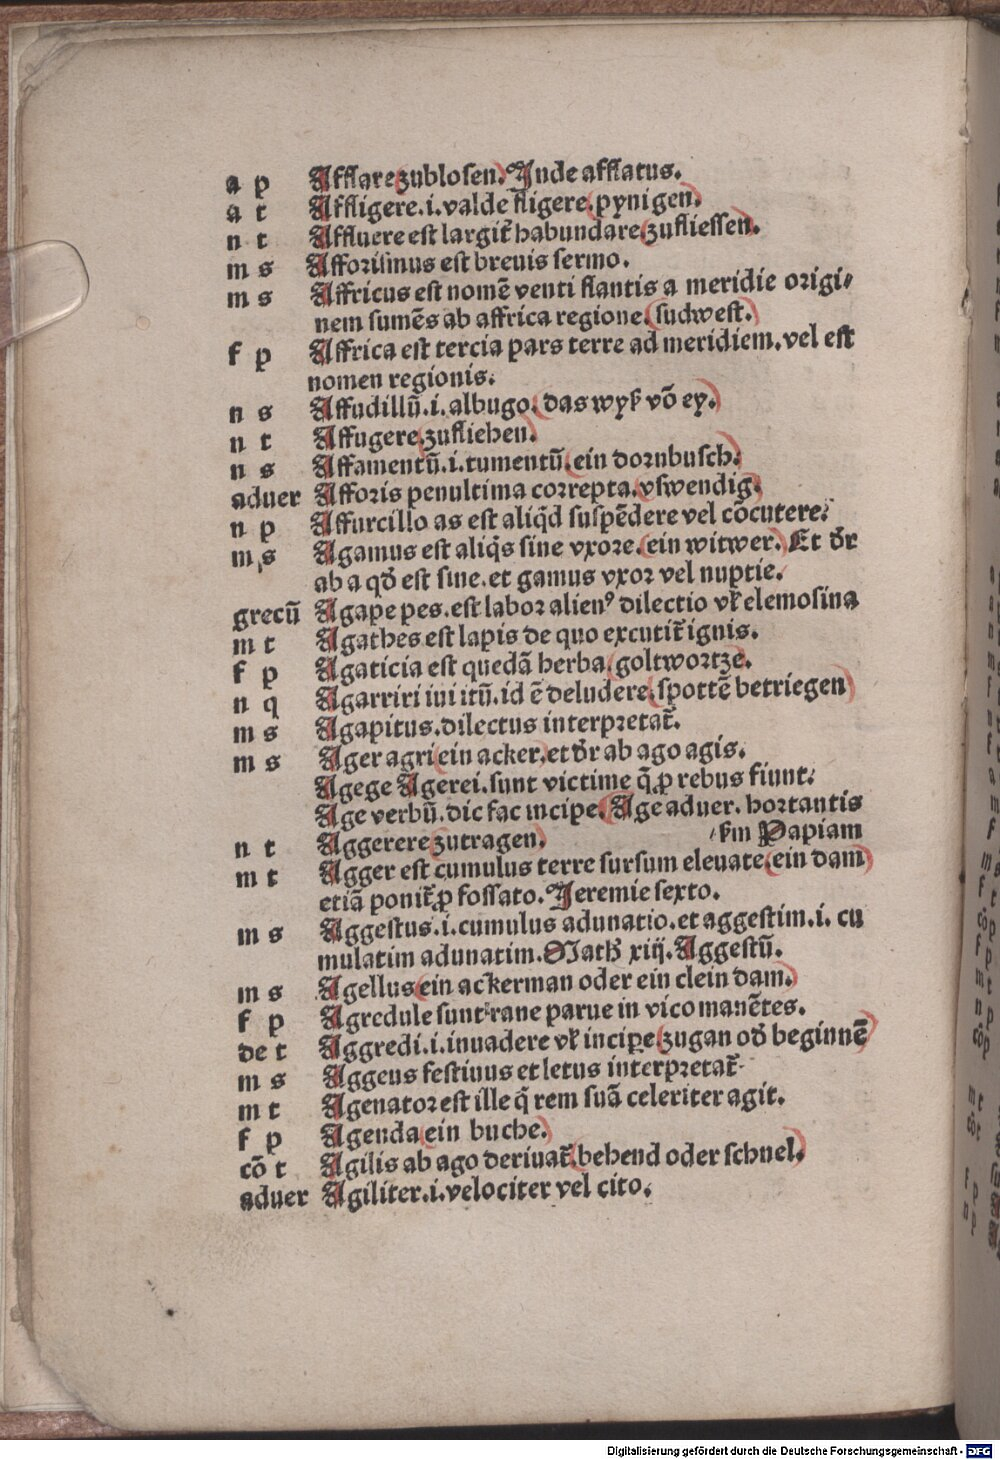 a p Afflare zublosen. Inde afflatus.
a t Affligere .i. valde fligere. pynigen.
n t Affluere est largit̃ habundare zufliessen.
m s Afforismus est breuis sermo.
m s Affricus est nomē venti flantis a meridie origi⸗
nem sumēs ab affrica regione. sudwest.
f p Affrica est tercia pars terre ad meridiem. vel est
nomen regionis.
n s Affudillū .i. albugo. das wyß vō ey.
n t Affugere zufliehen.
n s Affamentū .i. tumentū. ein dornbusch.
aduer Afforis penultima correpta. vswendig.
n p Affurcillo as est aliq̄d suspēdere vel cōcutere.
m s Agamus est aliq̄s sine vxore. ein witwer. Et dr̄
ab a qd̄ est sine. et gamus vxor vel nuptie.
grecū Agape pes. est labor alienꝰ dilectio vƚ elemosina
m t Agathes est lapis de quo excutit̃ ignis.
f p Agaticia est quedā herba. goltwortze.
n q Agarriri iui itū. id ē deludere. spottē betriegen
m s Agapitus. dilectus interpretat̃.
m s Ager agri ein acker. et dr̄ ab ago agis.
Agege Agerei. sunt victime q̄ ꝓ rebus fiunt.
Age verbū. dic fac incipe. Age aduer. hortantis
n t Aggerere zutragen. ẜm Papiam
m t Agger est cumulus terre sursum eleuate. ein dam
etiā ponit̃ ꝓ fossato. Jeremie sexto.
m s Aggestus .i. cumulus adunatio. et aggestim .i. cu
mulatim adunatim. Math̄ xiij. Aggestū.
m s Agellus ein ackerman oder ein clein dam.
f p Agredule sunt rane parue in vico manētes.
de t Aggredi .i. inuadere vƚ incipe zugan od̄ beginnē
m s Aggeus festiuus et letus interpretat̃.
m t Agenator est ille q̄ rem suā celeriter agit.
f p Agenda ein buche.
cō t Agilis ab ago deriuat̃. behend oder schnel.
aduer Agiliter .i. velociter vel cito.
Digitalisierung gefördert durch die Deutsche Forschungsgemeinschaft - DFG